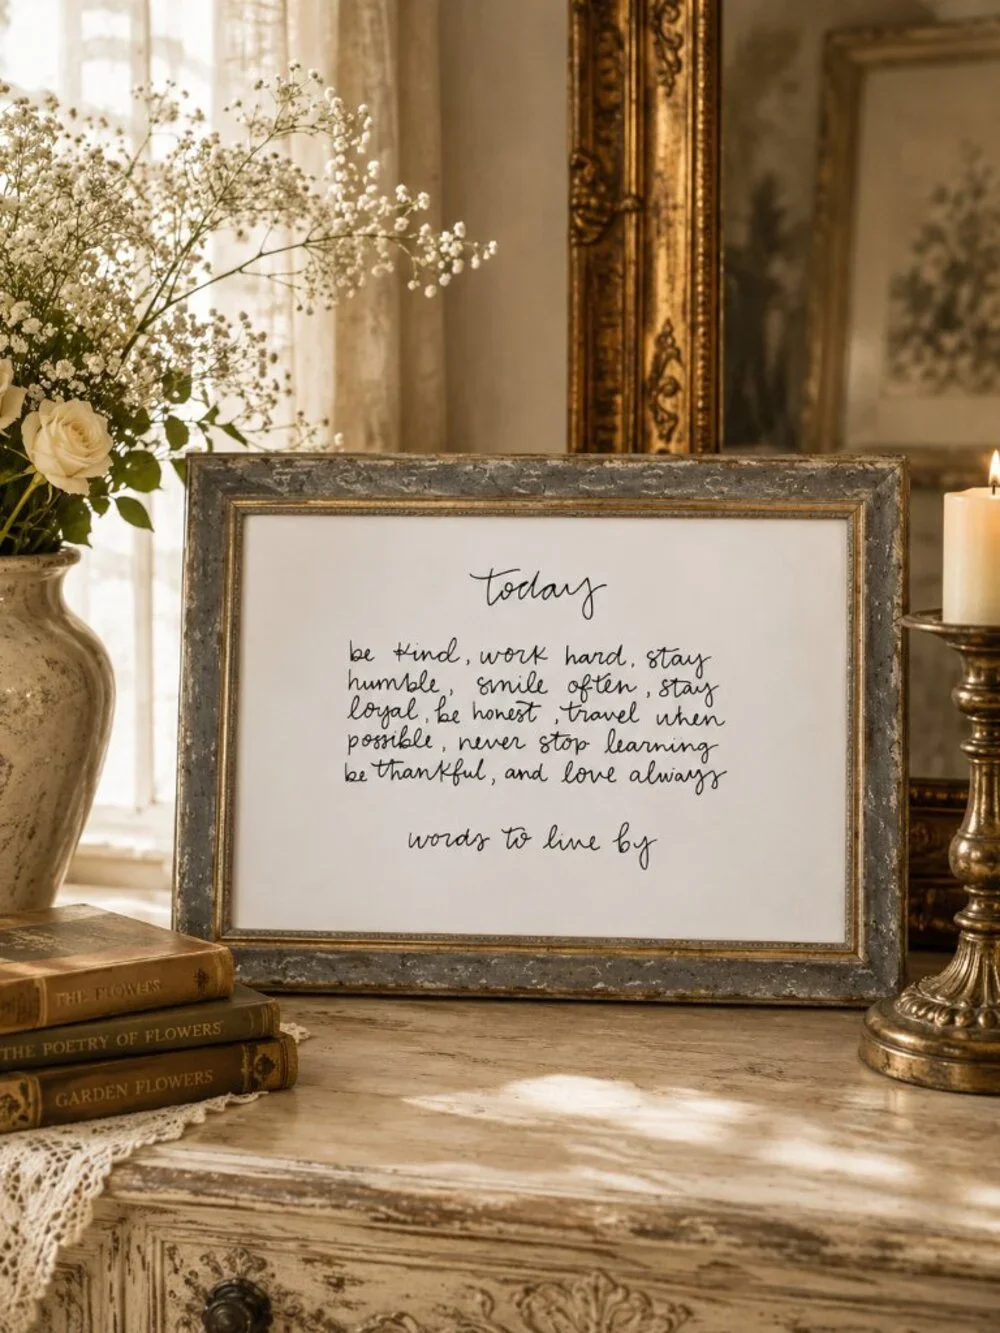 today
be kind, work hard, stay
humble, smile often, stay
loyal, be honest, travel when
possible, never stop learning
be thankful, and love always
words to live by
THE FLOWERS
THE POETRY OF FLOWERS
GARDEN FLOWERS